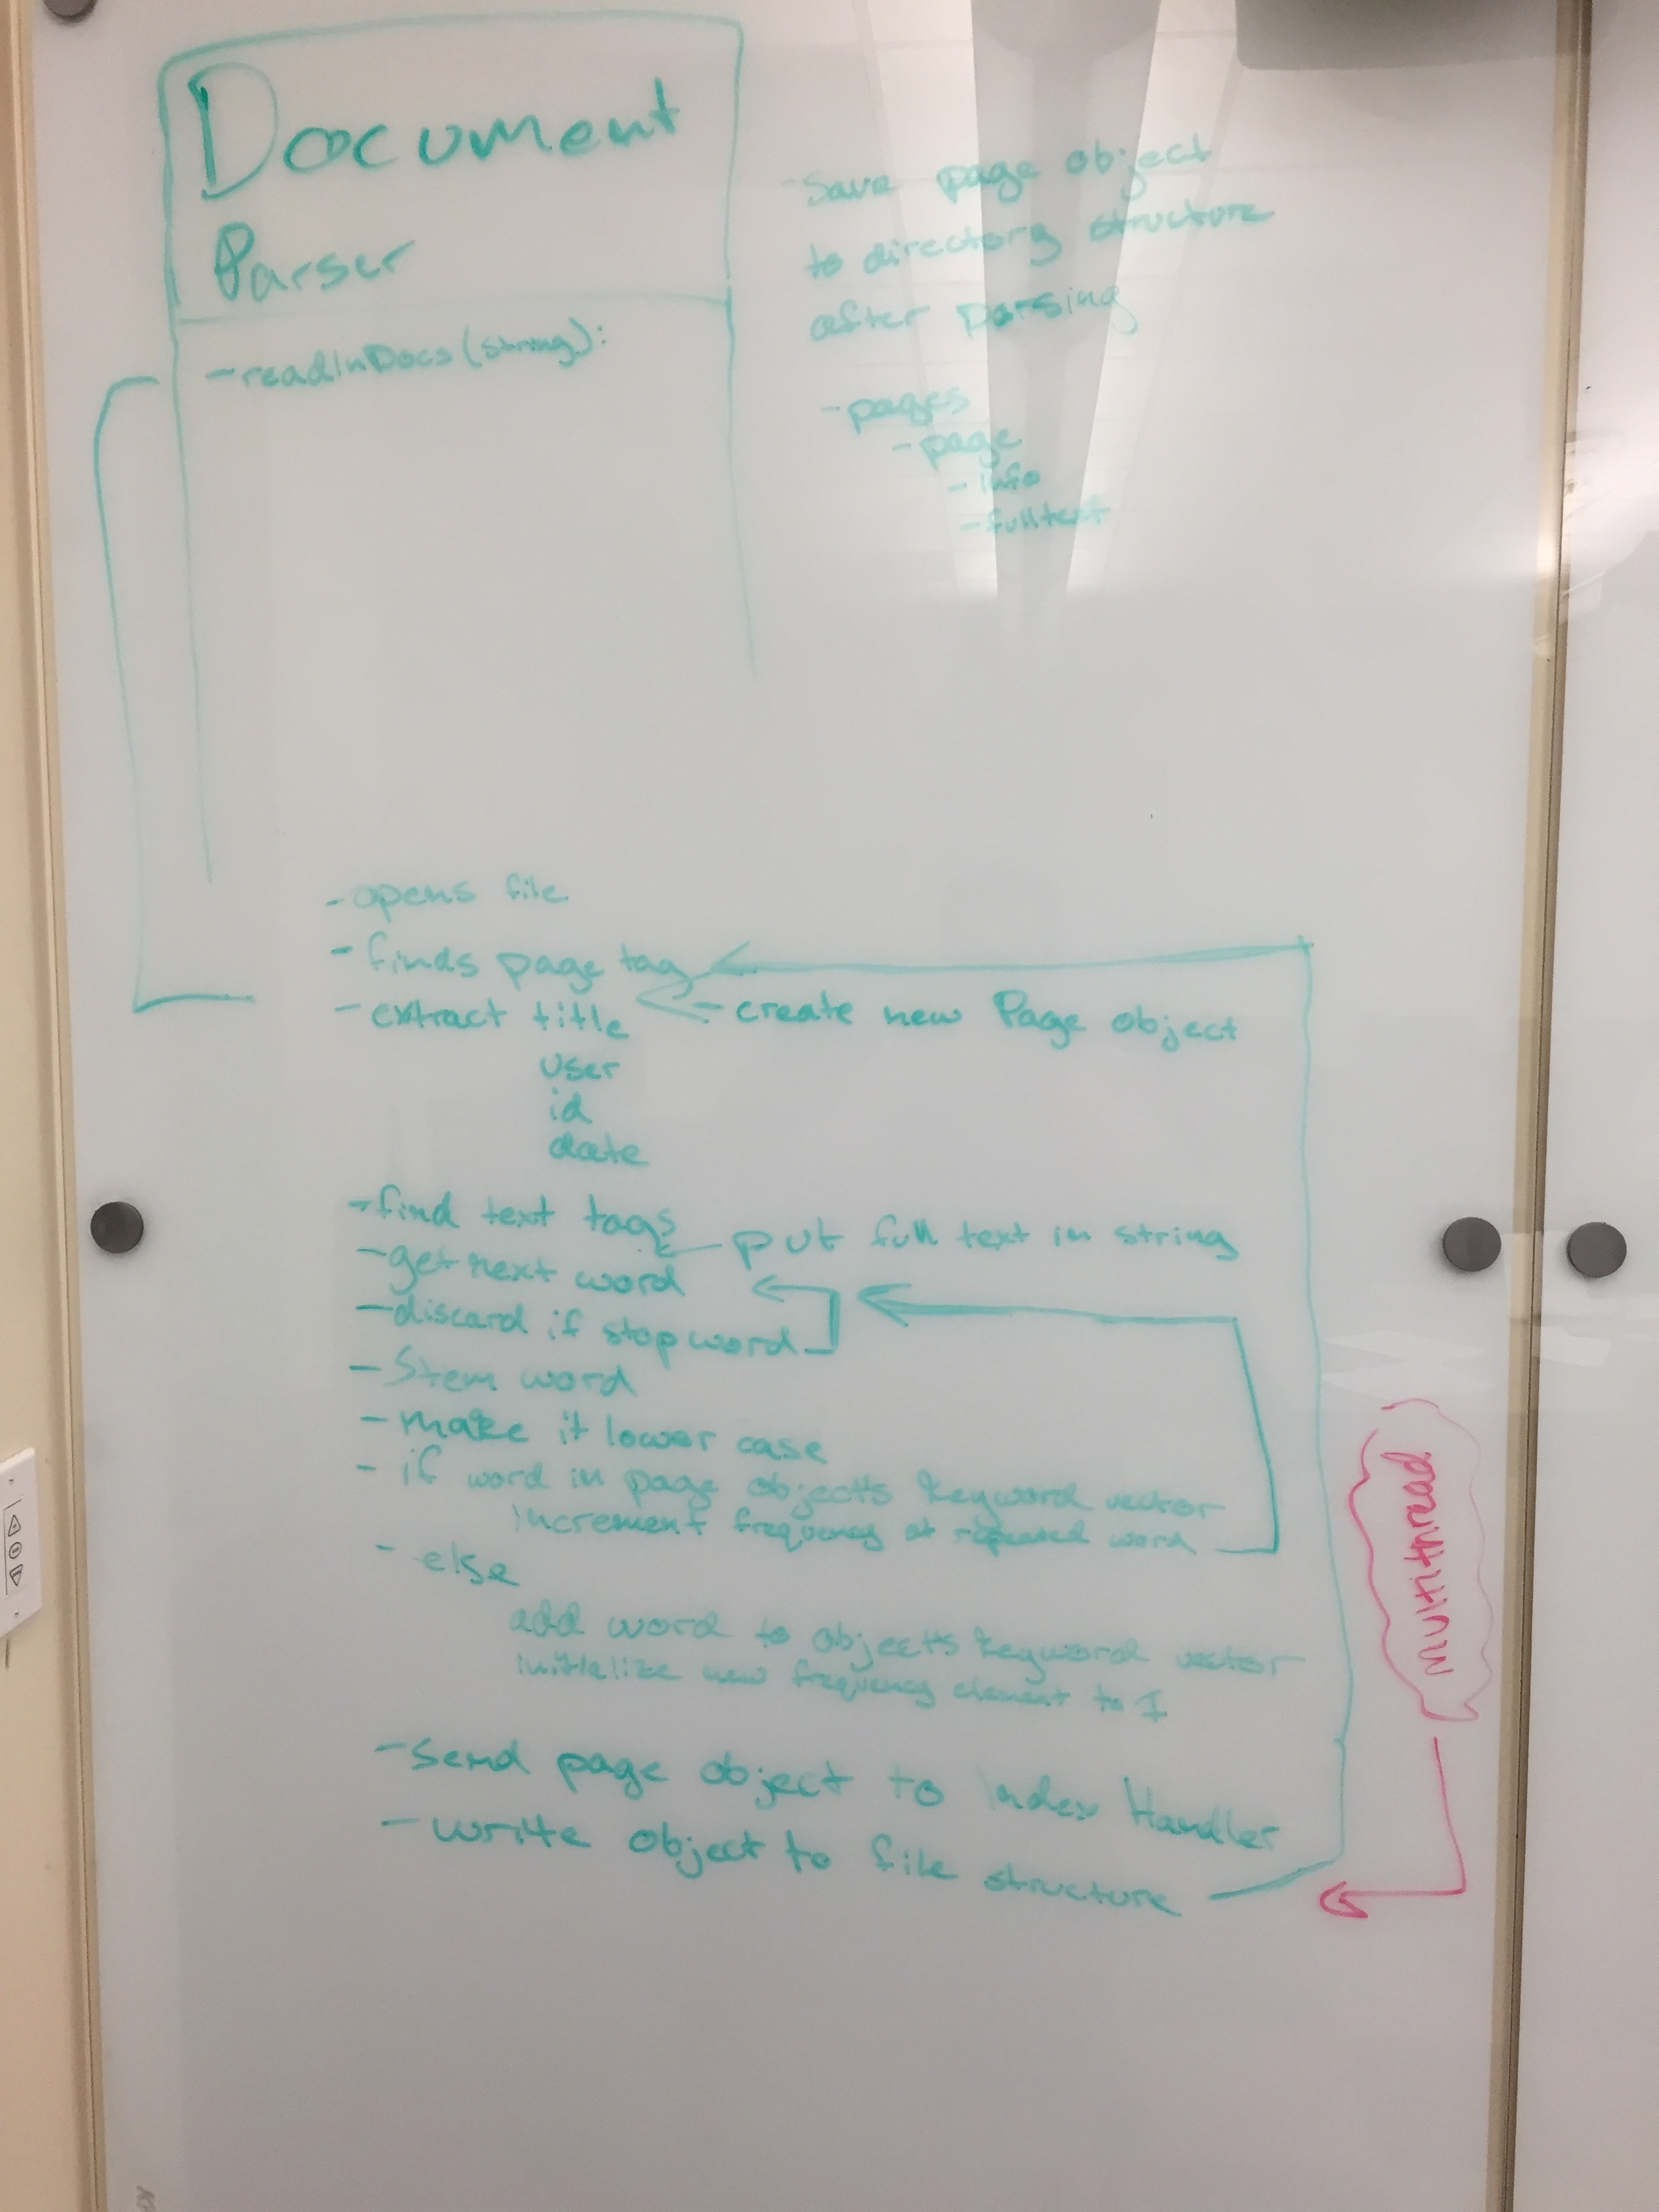 Document
Parser
-readInDocs(string):
-Save page object
to directory structure
after parsing
-pages
-page
-info
-fulltext
-opens file
-finds page tag
-create new Page object
-extract title
user
id
date
-find text tags
-put full text in string
-get next word
-discard if stop word
-Stem word
-make it lower case
-if word in page object's keyword vector
increment frequency at repeated word
-else
add word to object's keyword vector
initialize new frequency element to 1
-Send page object to Index Handler
-write object to file structure
multithread